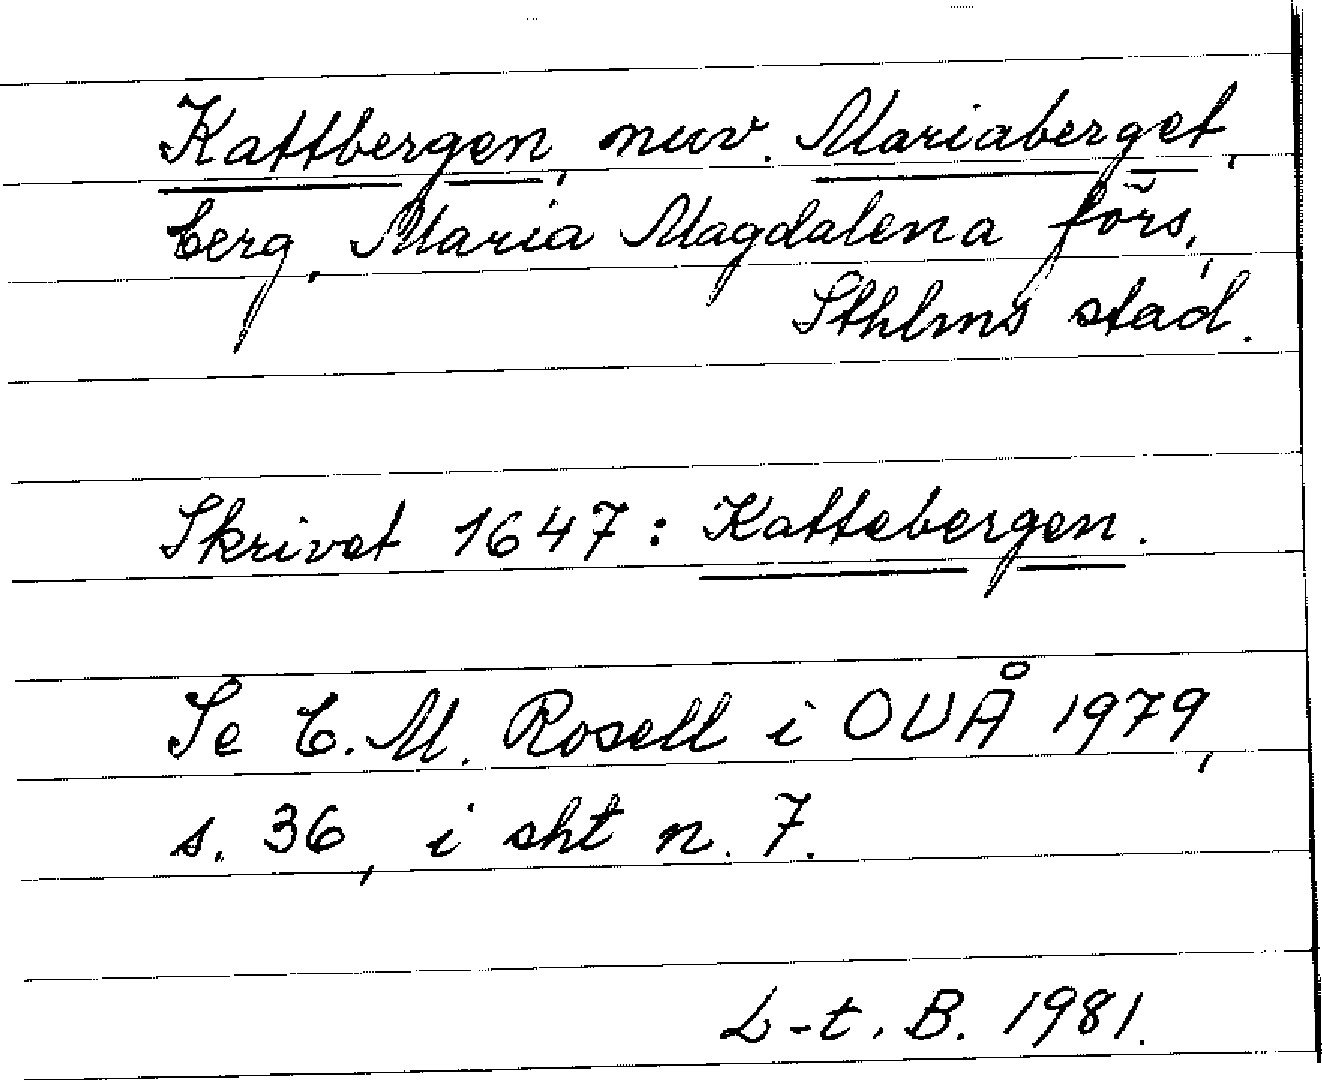 Kattbergen, nuv. Mariaberget,
berg, Maria Magdalena förs.,
Sthlms stad.
Skrivet 1647: Kattebergen.
Se C. M. Rosell i OUÅ 1979,
s. 36, i sht n. 7.
L-t. B. 1981.